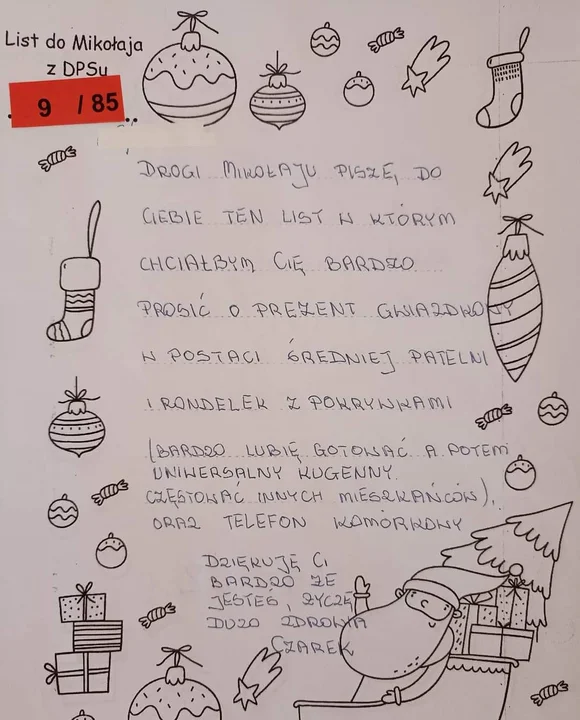 List do Mikołaja
z DPSu
9 / 85
DROGI MIKOŁAJU PISZĘ, DO
CIEBIE TEN LIST W KTÓRYM
CHCIAŁBYM CIĘ BARDZO
PROSIĆ O PREZENT GWIAZDKOWY
W POSTACI ŚREDNIEJ PATELNI
I RONDELEK Z POKRYWKAMI
(BARDZO LUBIĘ GOTOWAĆ A POTEM
UNIWERSALNY KUGENNY
CZĘSTOWAĆ INNYCH MIESZKAŃCÓW),
ORAZ TELEFON KOMÓRKOWY
DZIĘKUJĘ CI
BARDZO ŻE
JESTEŚ, ŻYCZĘ
DUŻO ZDROWIA
CZAREK